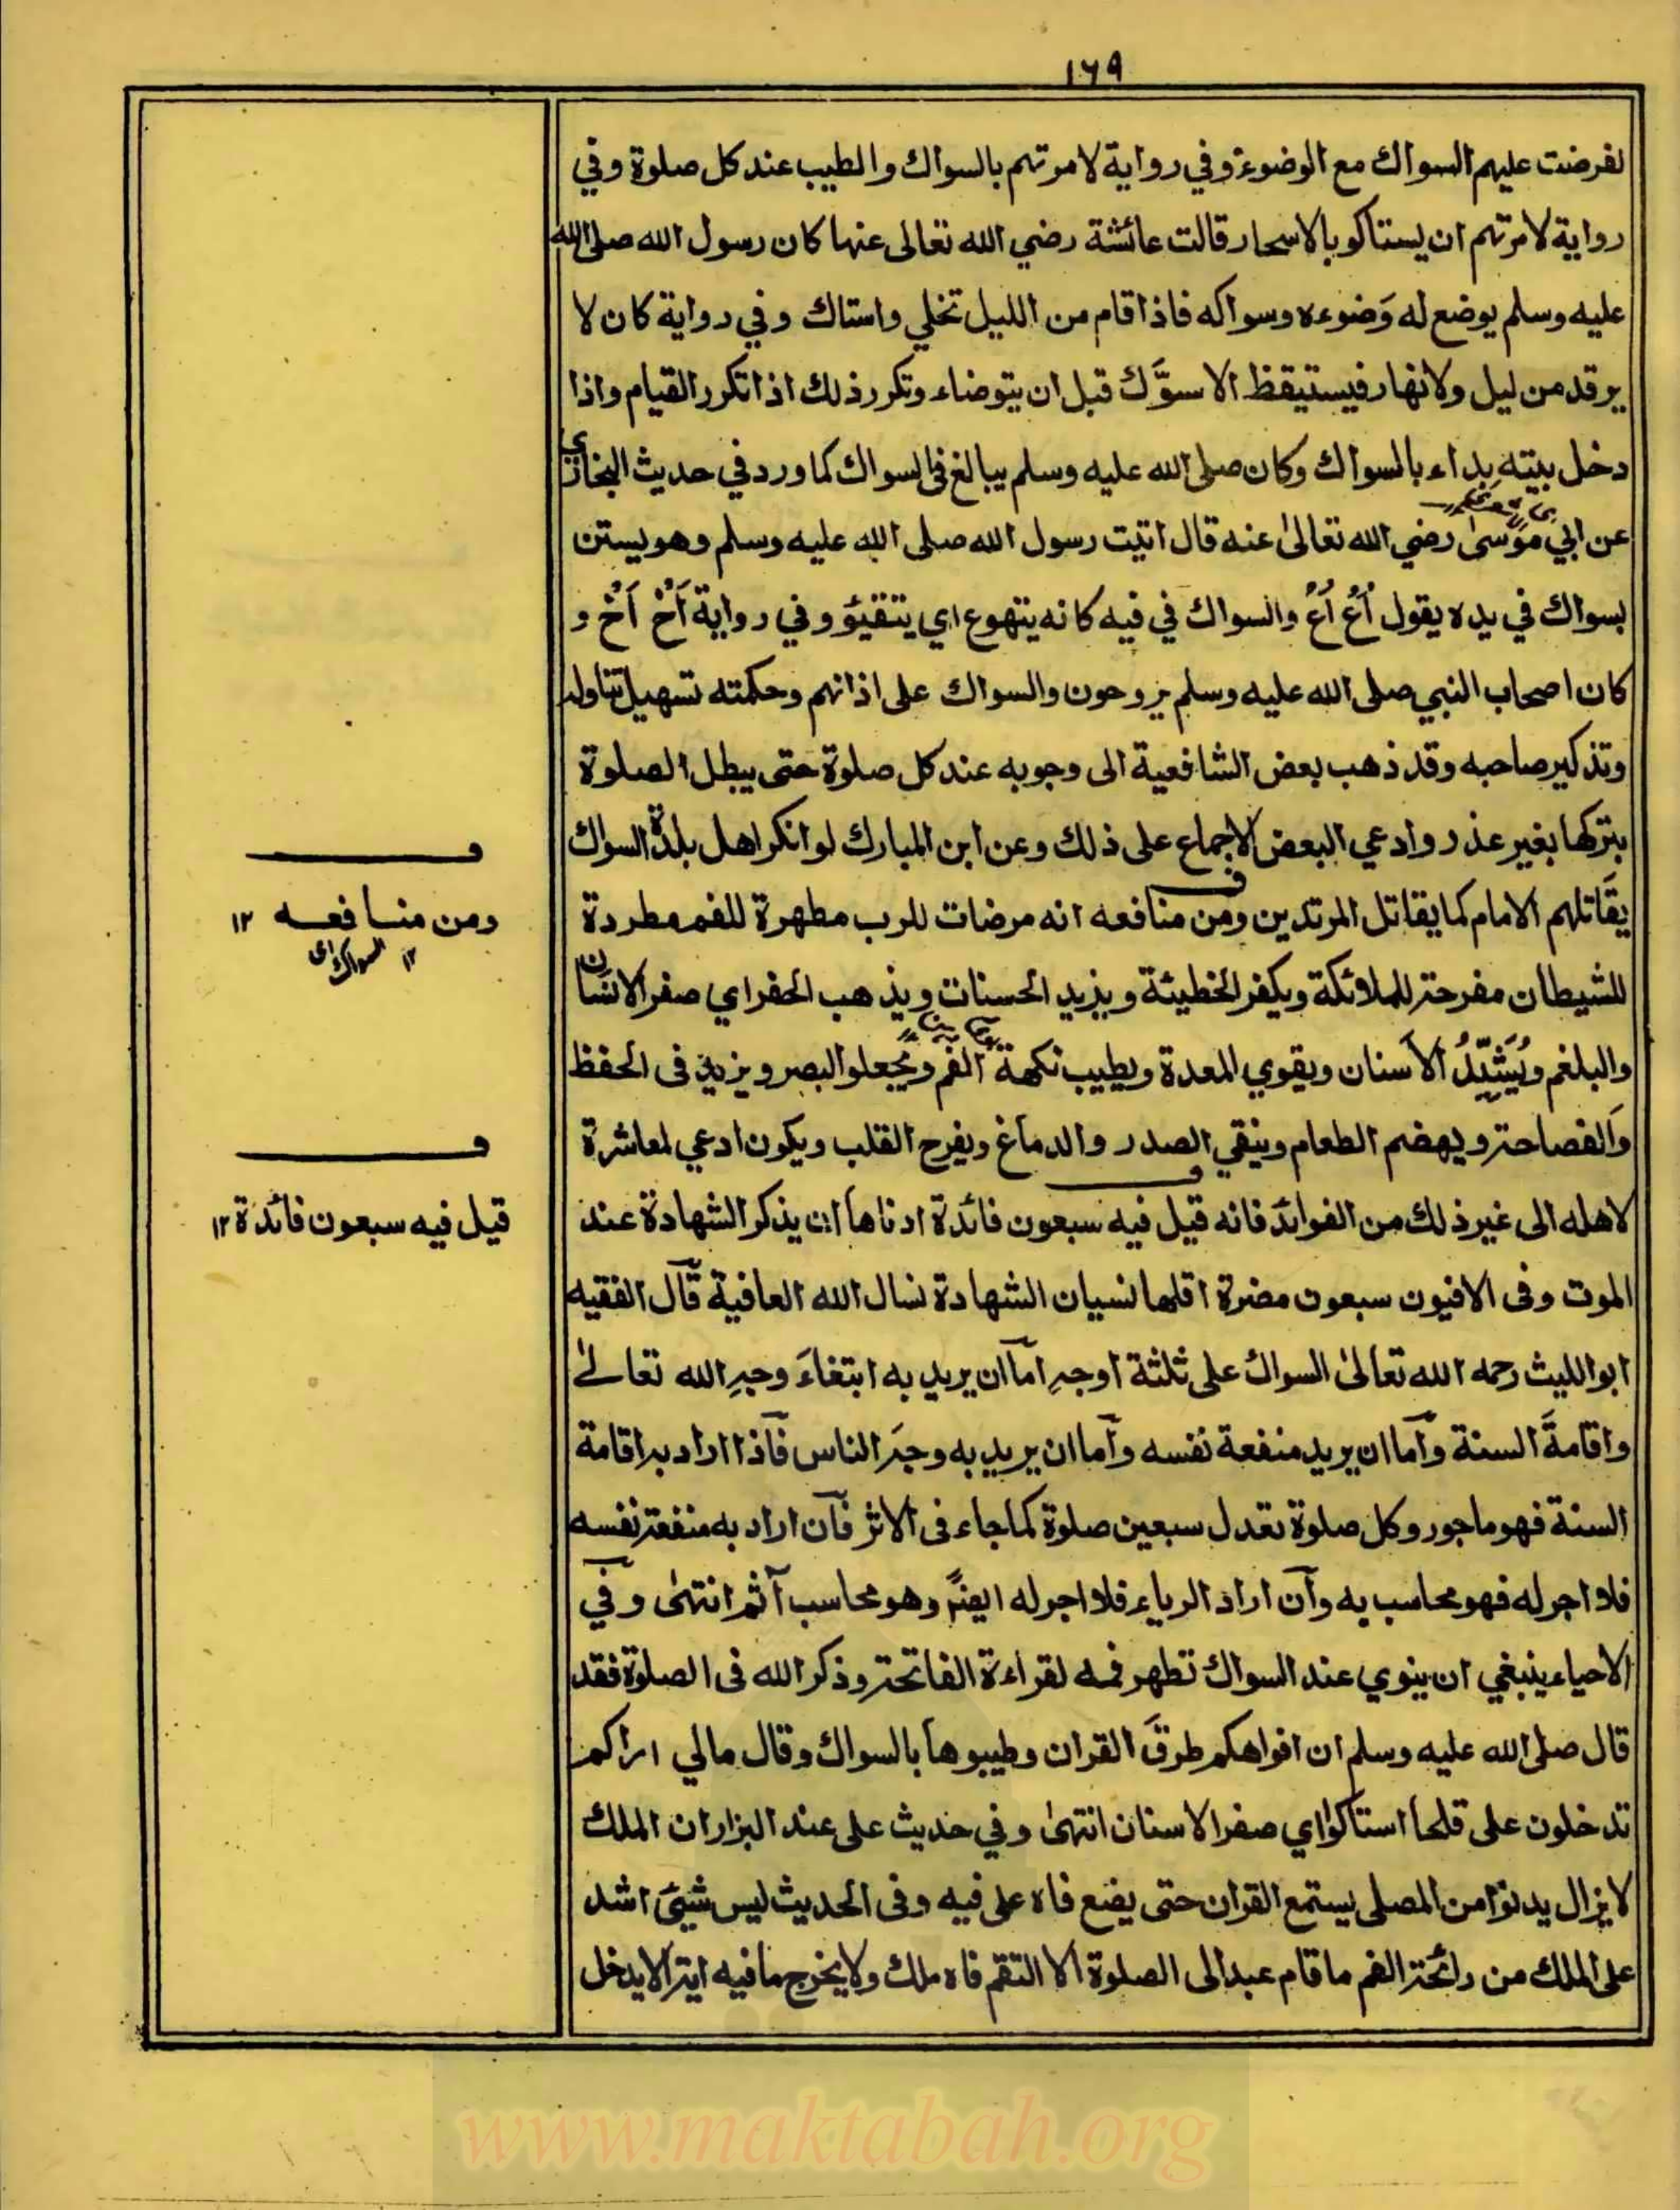 ١٦٩
لفرضت عليهم السواك مع الوضوء وفي رواية لامرتهم بالسواك والطيب عند كل صلوة وفي
رواية لامرتهم ان يستاكو بالاسحار قالت عائشة رضي الله تعالى عنها كان رسول الله صلى الله
عليه وسلم يوضع له وَضوءه وسواكه فاذا قام من الليل تخلي واستاك وفي رواية كان لا
يرقد من ليل ولا نهار فيستيقظ الا سوَّك قبل ان يتوضاء وتكرر ذلك اذا تكرر القيام واذا
دخل بيته بداء بالسواك وكان صلى الله عليه وسلم يبالغ فى السواك كما ورد في حديث البخاري
عن ابي موسىٰ رضي الله تعالىٰ عنه قال اتيت رسول الله صلى الله عليه وسلم وهو يستن
بسواك في يده يقول اُعْ اُعْ والسواك في فيه كانه يتهوع اي يتقيؤ وفي رواية اَخْ اَخْ و
كان اصحاب النبي صلى الله عليه وسلم يروحون والسواك على اذانهم وحكمته تسهيل تناوله
وتذكير صاحبه وقد ذهب بعض الشافعية الى وجوبه عند كل صلوة حتى يبطل الصلوة
بتركها بغير عذر وادعي البعض الاجماع على ذلك وعن ابن المبارك لو انكر اهل بلدة السواك
يقاتلهم الامام كما يقاتل المرتدين ومن منافعه انه مرضات للرب مطهرة للفم مطردة
للشيطان مفرحة للملائكة ويكفر الخطيئة ويزيد الحسنات ويذهب الحفر اي صفر الاسنان
والبلغم ويُشَدِّدُ الاسنان ويقوي المعدة ويطيب نكهة الفم ويجعلو البصر ويزيد فى الحفظ
والفصاحة ويهضم الطعام وينقي الصدر والدماغ ويفرح القلب ويكون ادعي لمعاشرة
لاهله الى غير ذلك من الفوائد فانه قيل فيه سبعون فائدة ادناها ان يذكر الشهادة عند
الموت وفى الافيون سبعون مضرة اقلها نسيان الشهادة نسال الله العافية قال الفقيه
ابو الليث رحمه الله تعالىٰ السواك على ثلثة اوجهِ اما ان يريد به ابتغاءَ وجهِ الله تعالىٰ
واقامةَ السنة واما ان يريد منفعة نفسه واما ان يريد به وجهَ الناس فاذا اراد به اقامة
السنة فهو ماجور وكل صلوة تعدل سبعين صلوة كما جاء فى الاثر فان اراد به منفعة نفسه
فلا اجر له فهو محاسب به وان اراد الرياء فلا اجر له ايضًا وهو محاسب آثم انتهىٰ وفي
الاحياء ينبغي ان ينوي عند السواك تطهر فمه لقراءة الفاتحة وذكر الله فى الصلوة فقد
قال صلى الله عليه وسلم ان افواهكم طرقَ القران وطيبوها بالسواك وقال مالي اراكم
تدخلون على قلحا استاكوا اي صفر الاسنان انتهىٰ وفي حديث على عند البزار ان الملك
لا يزال يدنوا من المصلى يستمع القران حتى يضع فاه على فيه وفى الحديث ليس شيئ اشد
على الملك من رائحة الفم ما قام عبد الى الصلوة الا التقم فاه ملك ولا يخرج ما فيه اية الا يدخل
ومن منافعه ١٢
السواك ١٢
قيل فيه سبعون فائدة ١٢
www.maktabah.org